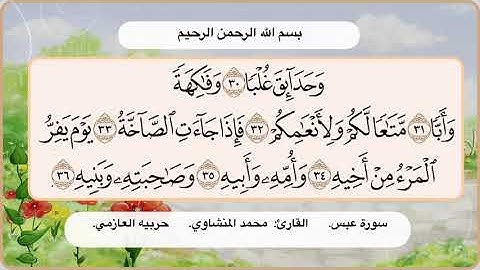 بسم الله الرحمن الرحيم
وَحَدَآئِقَ غُلۡبٗا ٣٠ وَفَٰكِهَةٗ
وَأَبّٗا ٣١ مَّتَٰعٗا لَّكُمۡ وَلِأَنۡعَٰمِكُمۡ ٣٢ فَإِذَا جَآءَتِ ٱلصَّآخَّةُ ٣٣ يَوۡمَ يَفِرُّ
ٱلۡمَرۡءُ مِنۡ أَخِيهِ ٣٤ وَأُمِّهِۦ وَأَبِيهِ ٣٥ وَصَٰحِبَتِهِۦ وَبَنِيهِ ٣٦
سورة عبس. القارئ: محمد المنشاوي. حربيه العازمي.